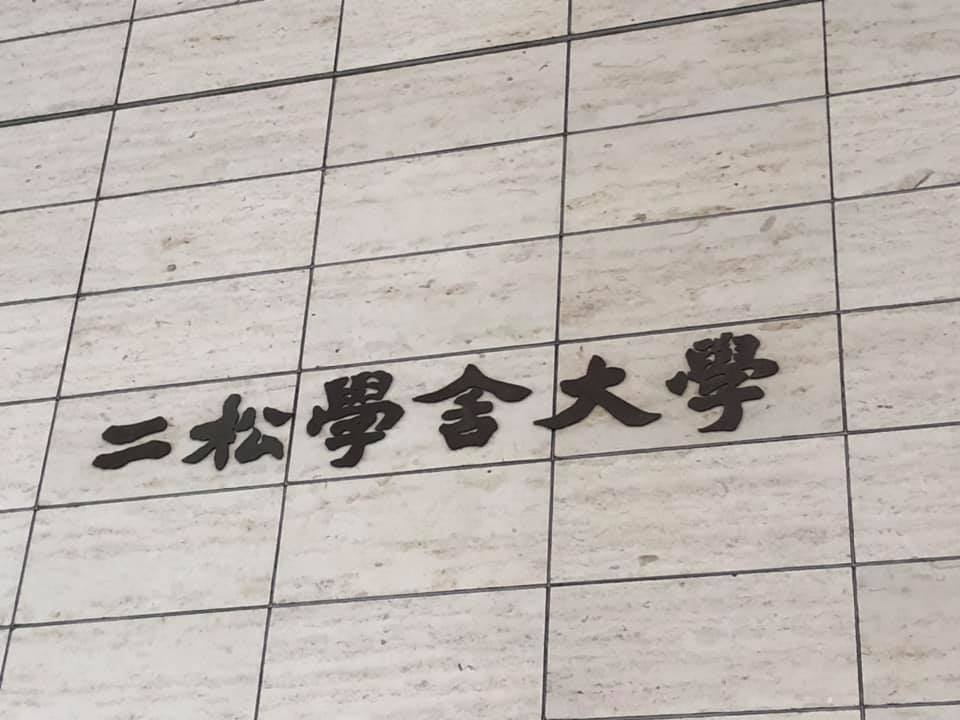 二松學舍大學